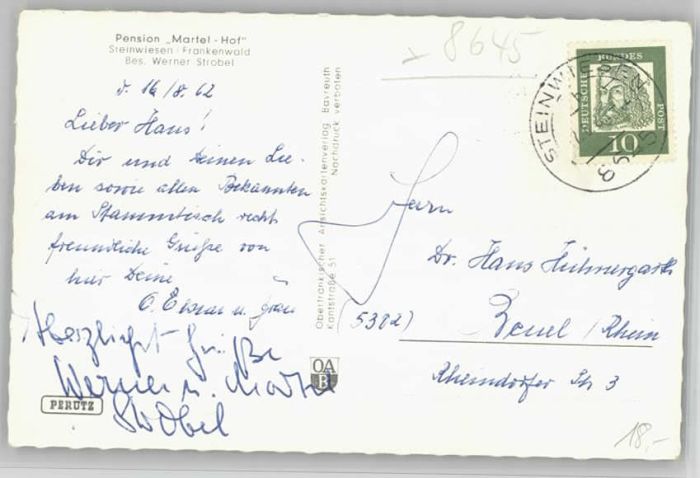 Pension „Martel-Hof"
Steinwiesen · Frankenwald
Bes. Werner Strobel
8645
d. 16/8. 62
Lieber Hans!
Dir und Deinen Lie-
ben sowie allen Bekannten
am Stammtisch recht
freundliche Grüße von
hier Deine
u. Frau
Herzliche Grüße
Werner u.
Strobel
PERUTZ
Oberfränkischer Ansichtskartenverlag Bayreuth
Kantstraße 51 Nachdruck verboten
OA
B
DEUTSCHE BUNDES POST
10
STEINWIESEN
Herrn
Dr. Hans Hühnergarth
5302)
Beuel / Rhein
Rheindorfer Str 3
18,-